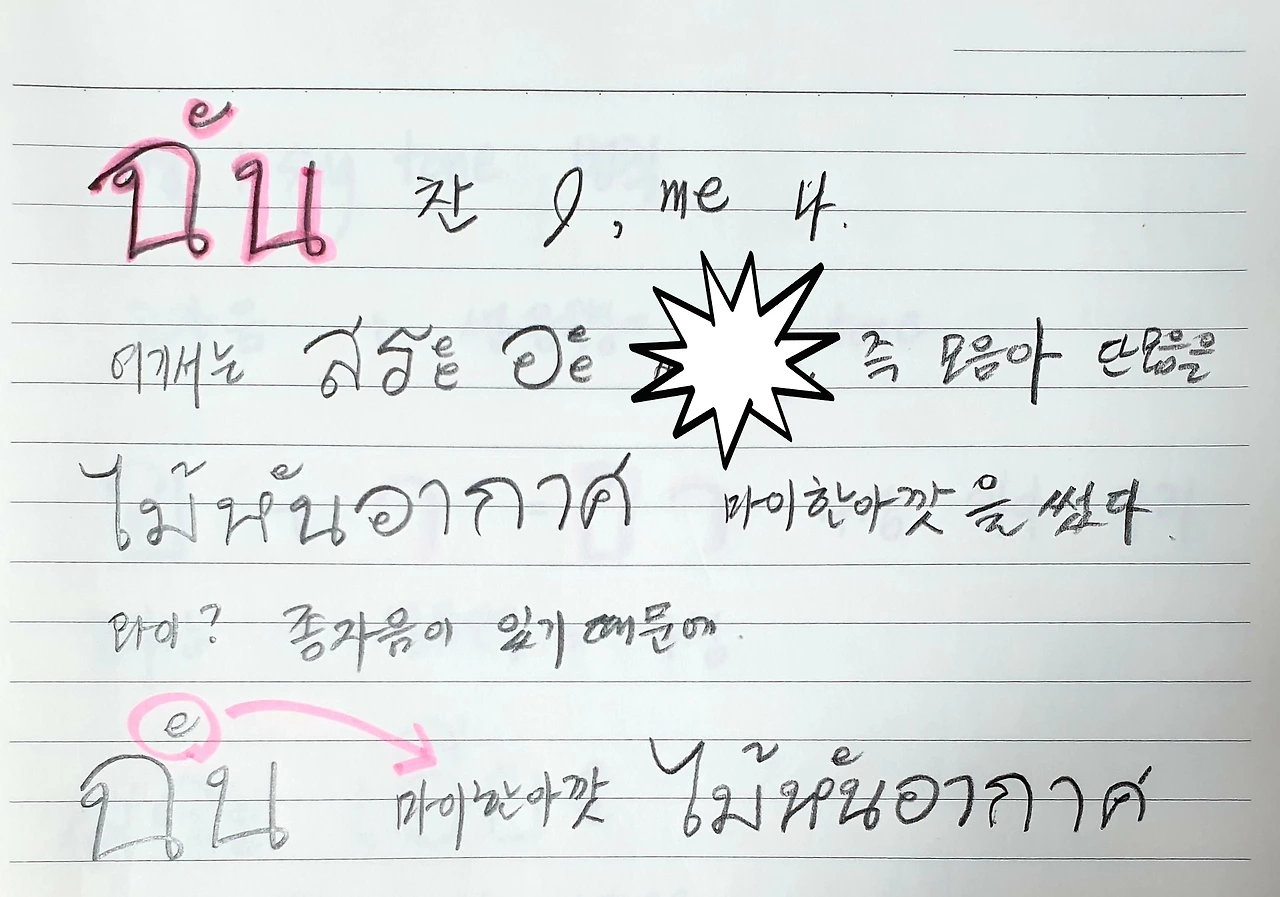 ฉัน 찬 I, me 나.
여기서는 สระ อะ 즉 모음아 단모음을
ไม้หันอากาศ 마이한아깟을 썼다.
와이? 종자음이 있기 때문에.
ฉัน 마이한아깟 ไม้หันอากาศ